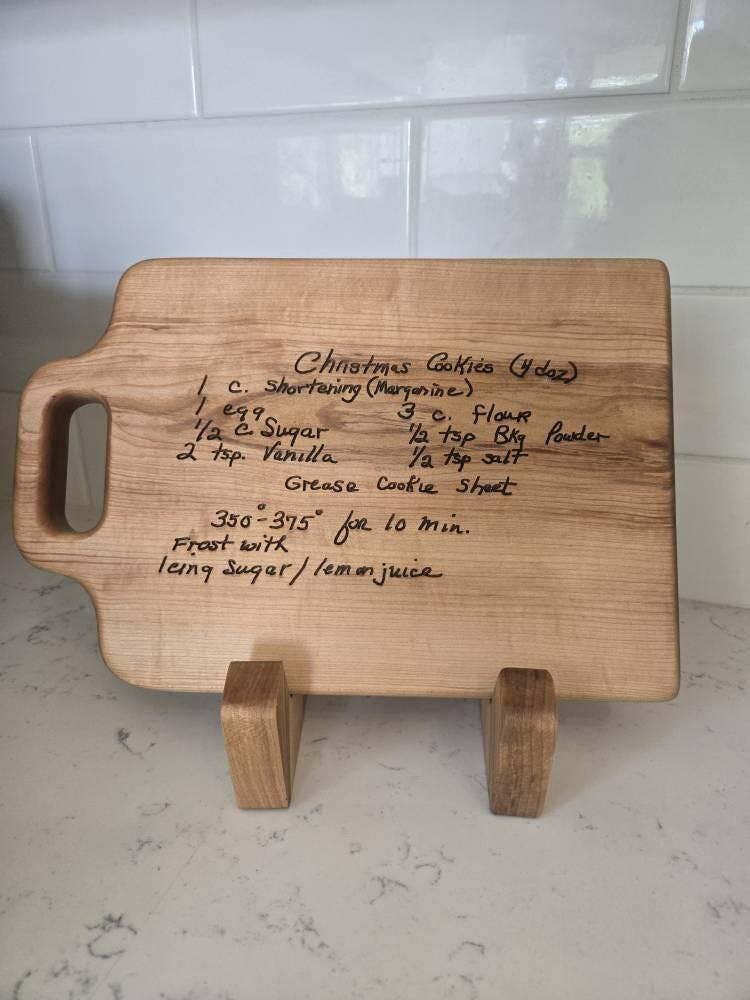 Christmas Cookies (4 doz)
1 c. shortening (Margarine)
1 egg 3 c. flour
1/2 c. Sugar 1/2 tsp Bkg Powder
2 tsp. Vanilla 1/2 tsp salt
Grease Cookie Sheet
350°-375° for 10 min.
Frost with
Icing Sugar/lemon juice